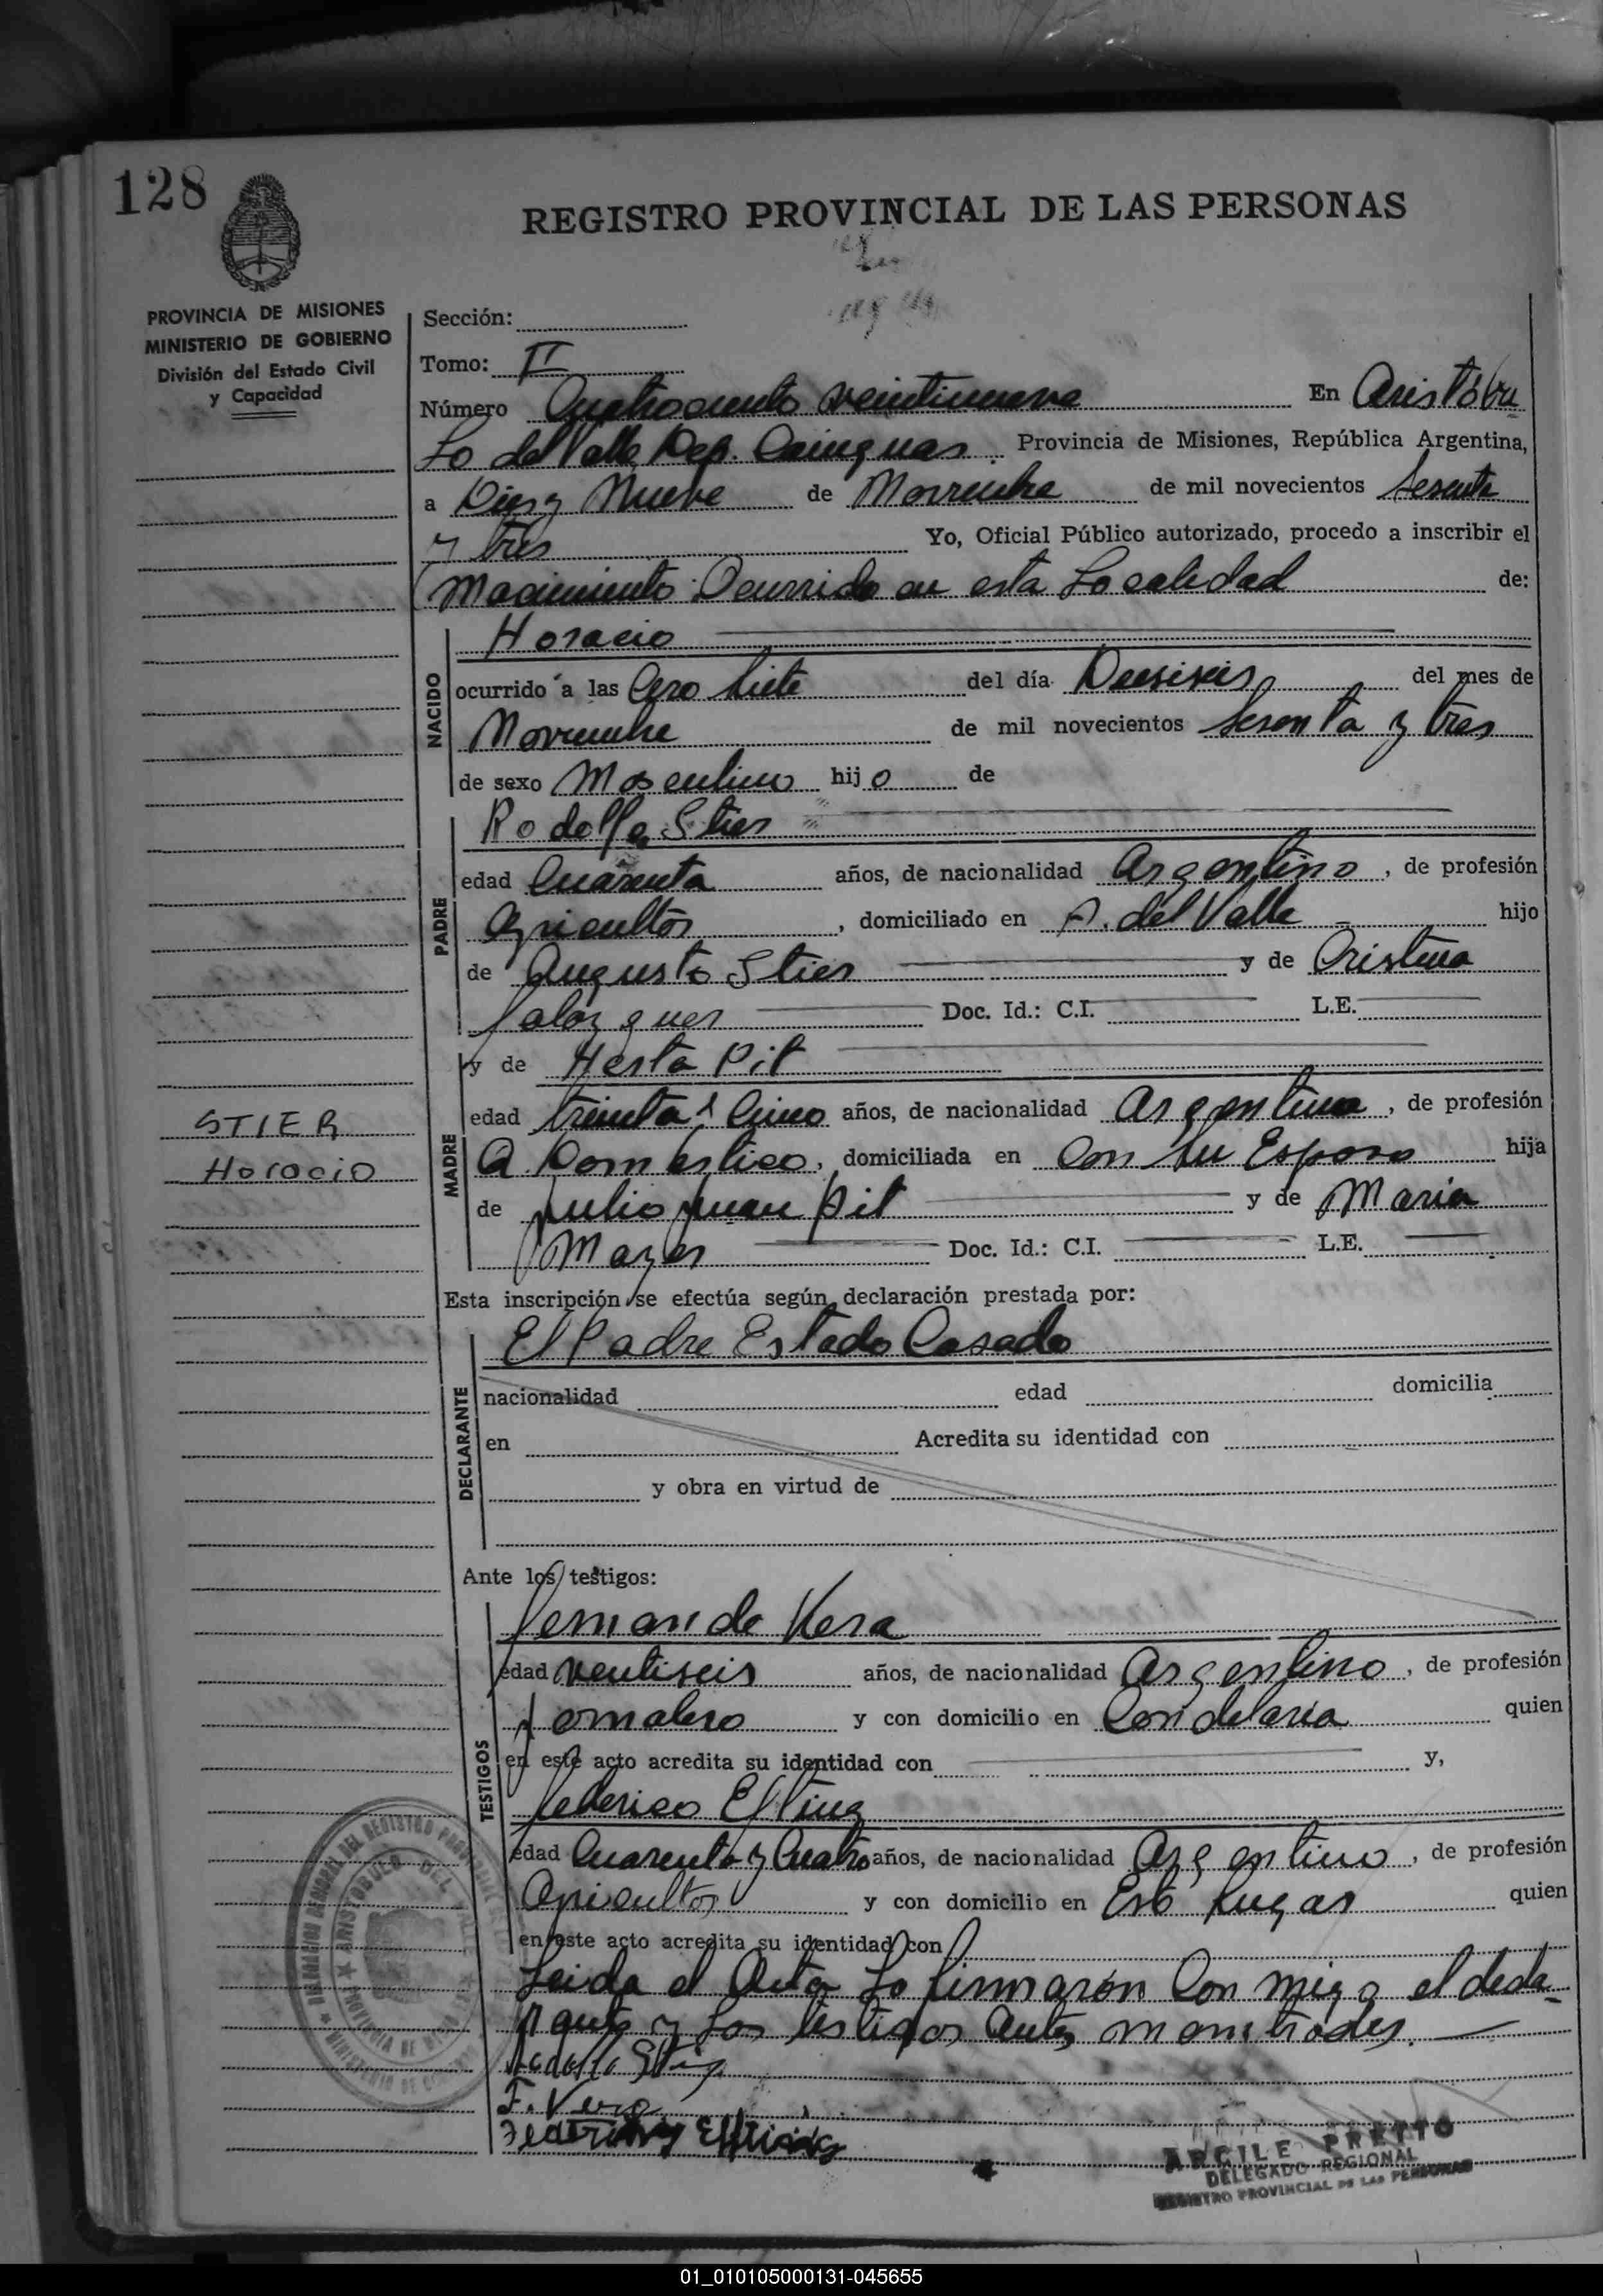 128
REGISTRO PROVINCIAL DE LAS PERSONAS
PROVINCIA DE MISIONES
MINISTERIO DE GOBIERNO
División del Estado Civil
y Capacidad
Sección:
Tomo: II
Número Cuatrocientos veintinueve En Aristóbu
lo del Valle Dep. Cainguas. Provincia de Misiones, República Argentina,
a Diez y Nueve de Noviembre de mil novecientos Sesenta
y tres Yo, Oficial Público autorizado, procedo a inscribir el
Nacimiento Ocurrido en esta Localidad de:
NACIDO
Horacio
ocurrido a las Cero Siete del día Dieciseis del mes de
Noviembre de mil novecientos Sesenta y tres
de sexo Masculino hijo de
PADRE
Rodolfo Stier
edad Cuarenta años, de nacionalidad Argentino, de profesión
Agricultor, domiciliado en A. del Valle hijo
de Augusto Stier y de Cristina
Doc. Id.: C.I. L.E.
MADRE
y de Herta Pit
edad treinta y Cinco años, de nacionalidad Argentina, de profesión
Q. Domestico, domiciliada en Con Su Esposo hija
de Julio Juan Pit y de Maria
Mayer Doc. Id.: C.I. L.E.
STIER
Horacio
Esta inscripción se efectúa según declaración prestada por:
DECLARANTE
El Padre Estado Casado
nacionalidad edad domicilia
en Acredita su identidad con
y obra en virtud de
Ante los testigos:
TESTIGOS
Fernando Vera
edad ventiseis años, de nacionalidad Argentino, de profesión
Jornalero y con domicilio en Candelaria quien
en este acto acredita su identidad con y,
Federico Efting
edad Cuarenta y Cuatro años, de nacionalidad Argentino, de profesión
Agricultor y con domicilio en Este Lugar quien
en este acto acredita su identidad con
Leida el Acta Lo firmaron Con migo el decla-
rante y Los testigos Antes
Rodolfo Stier
F. Vera
Efting
ARGILE PRETTO
DELEGADO REGIONAL
REGISTRO PROVINCIAL DE LAS PERSONAS
01_010105000131-045655